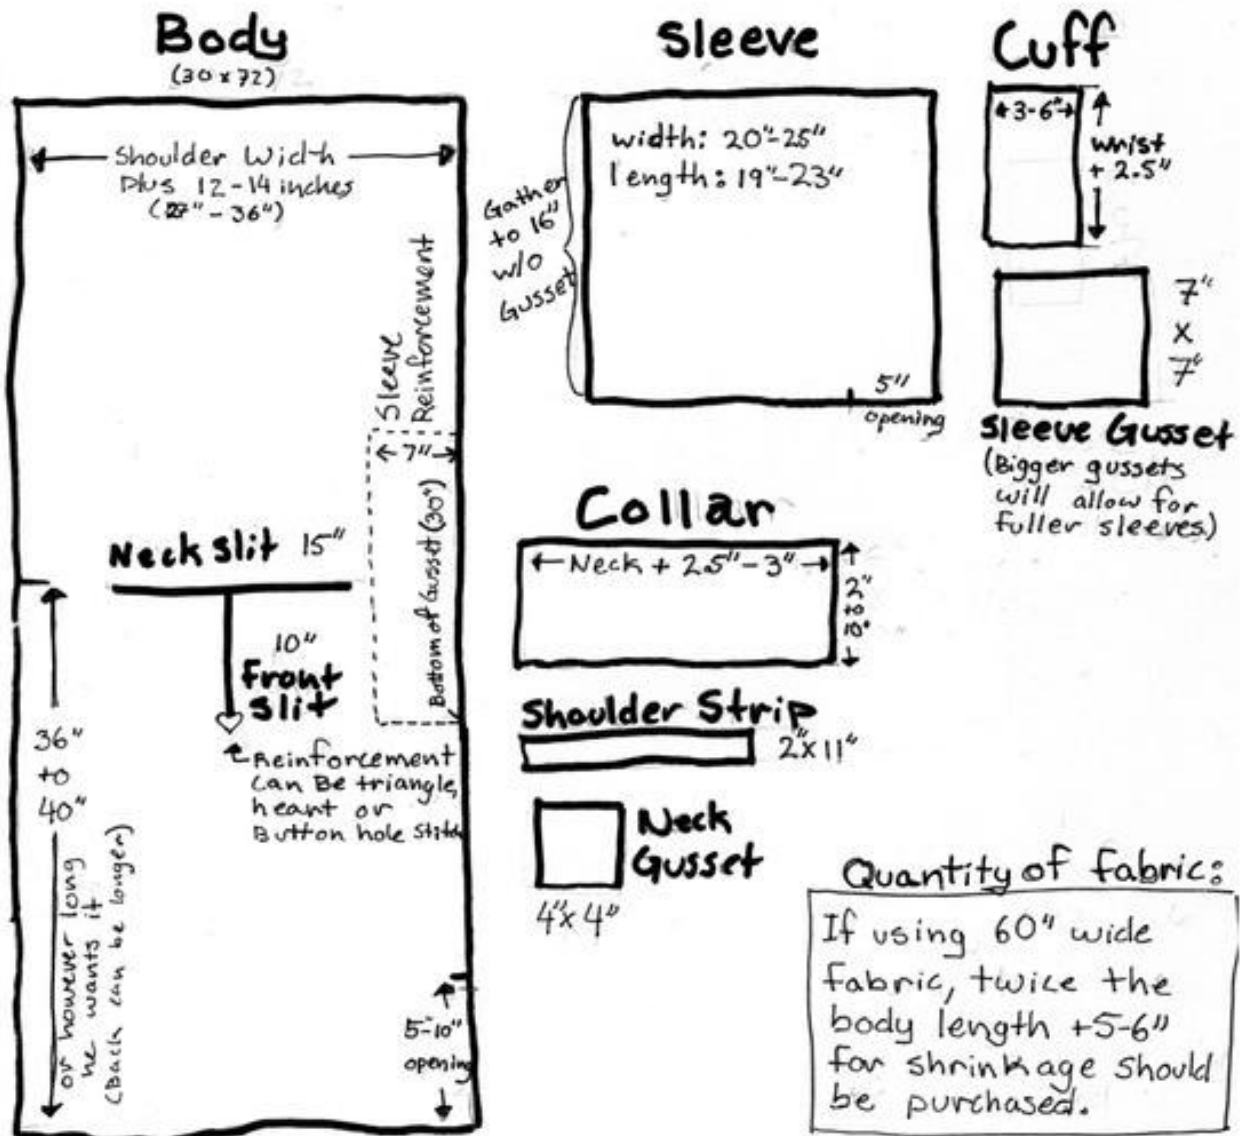 Body
(30 x 72)
Shoulder Width
plus 12-14 inches
(27"-36")
Sleeve
Reinforcement
7"
Bottom of Gusset (30")
Neck Slit 15"
10"
Front
Slit
Reinforcement
Can Be triangle,
heart or
Button hole Stitch
36"
to
40"
or however long
he wants it
(Back can be longer)
5-10"
opening
Sleeve
width: 20"-25"
length: 19"-23"
Gather
to 16"
w/o
Gusset
5"
opening
Cuff
3-6"
wrist
+ 2.5"
7"
x
7"
Sleeve Gusset
(Bigger gussets
will allow for
fuller sleeves)
Collar
Neck + 2.5"-3"
2"
to
10"
Shoulder Strip
2"x11"
Neck
Gusset
4"x4"
Quantity of fabric:
If using 60" wide
fabric, twice the
body length +5-6"
for shrinkage should
be purchased.